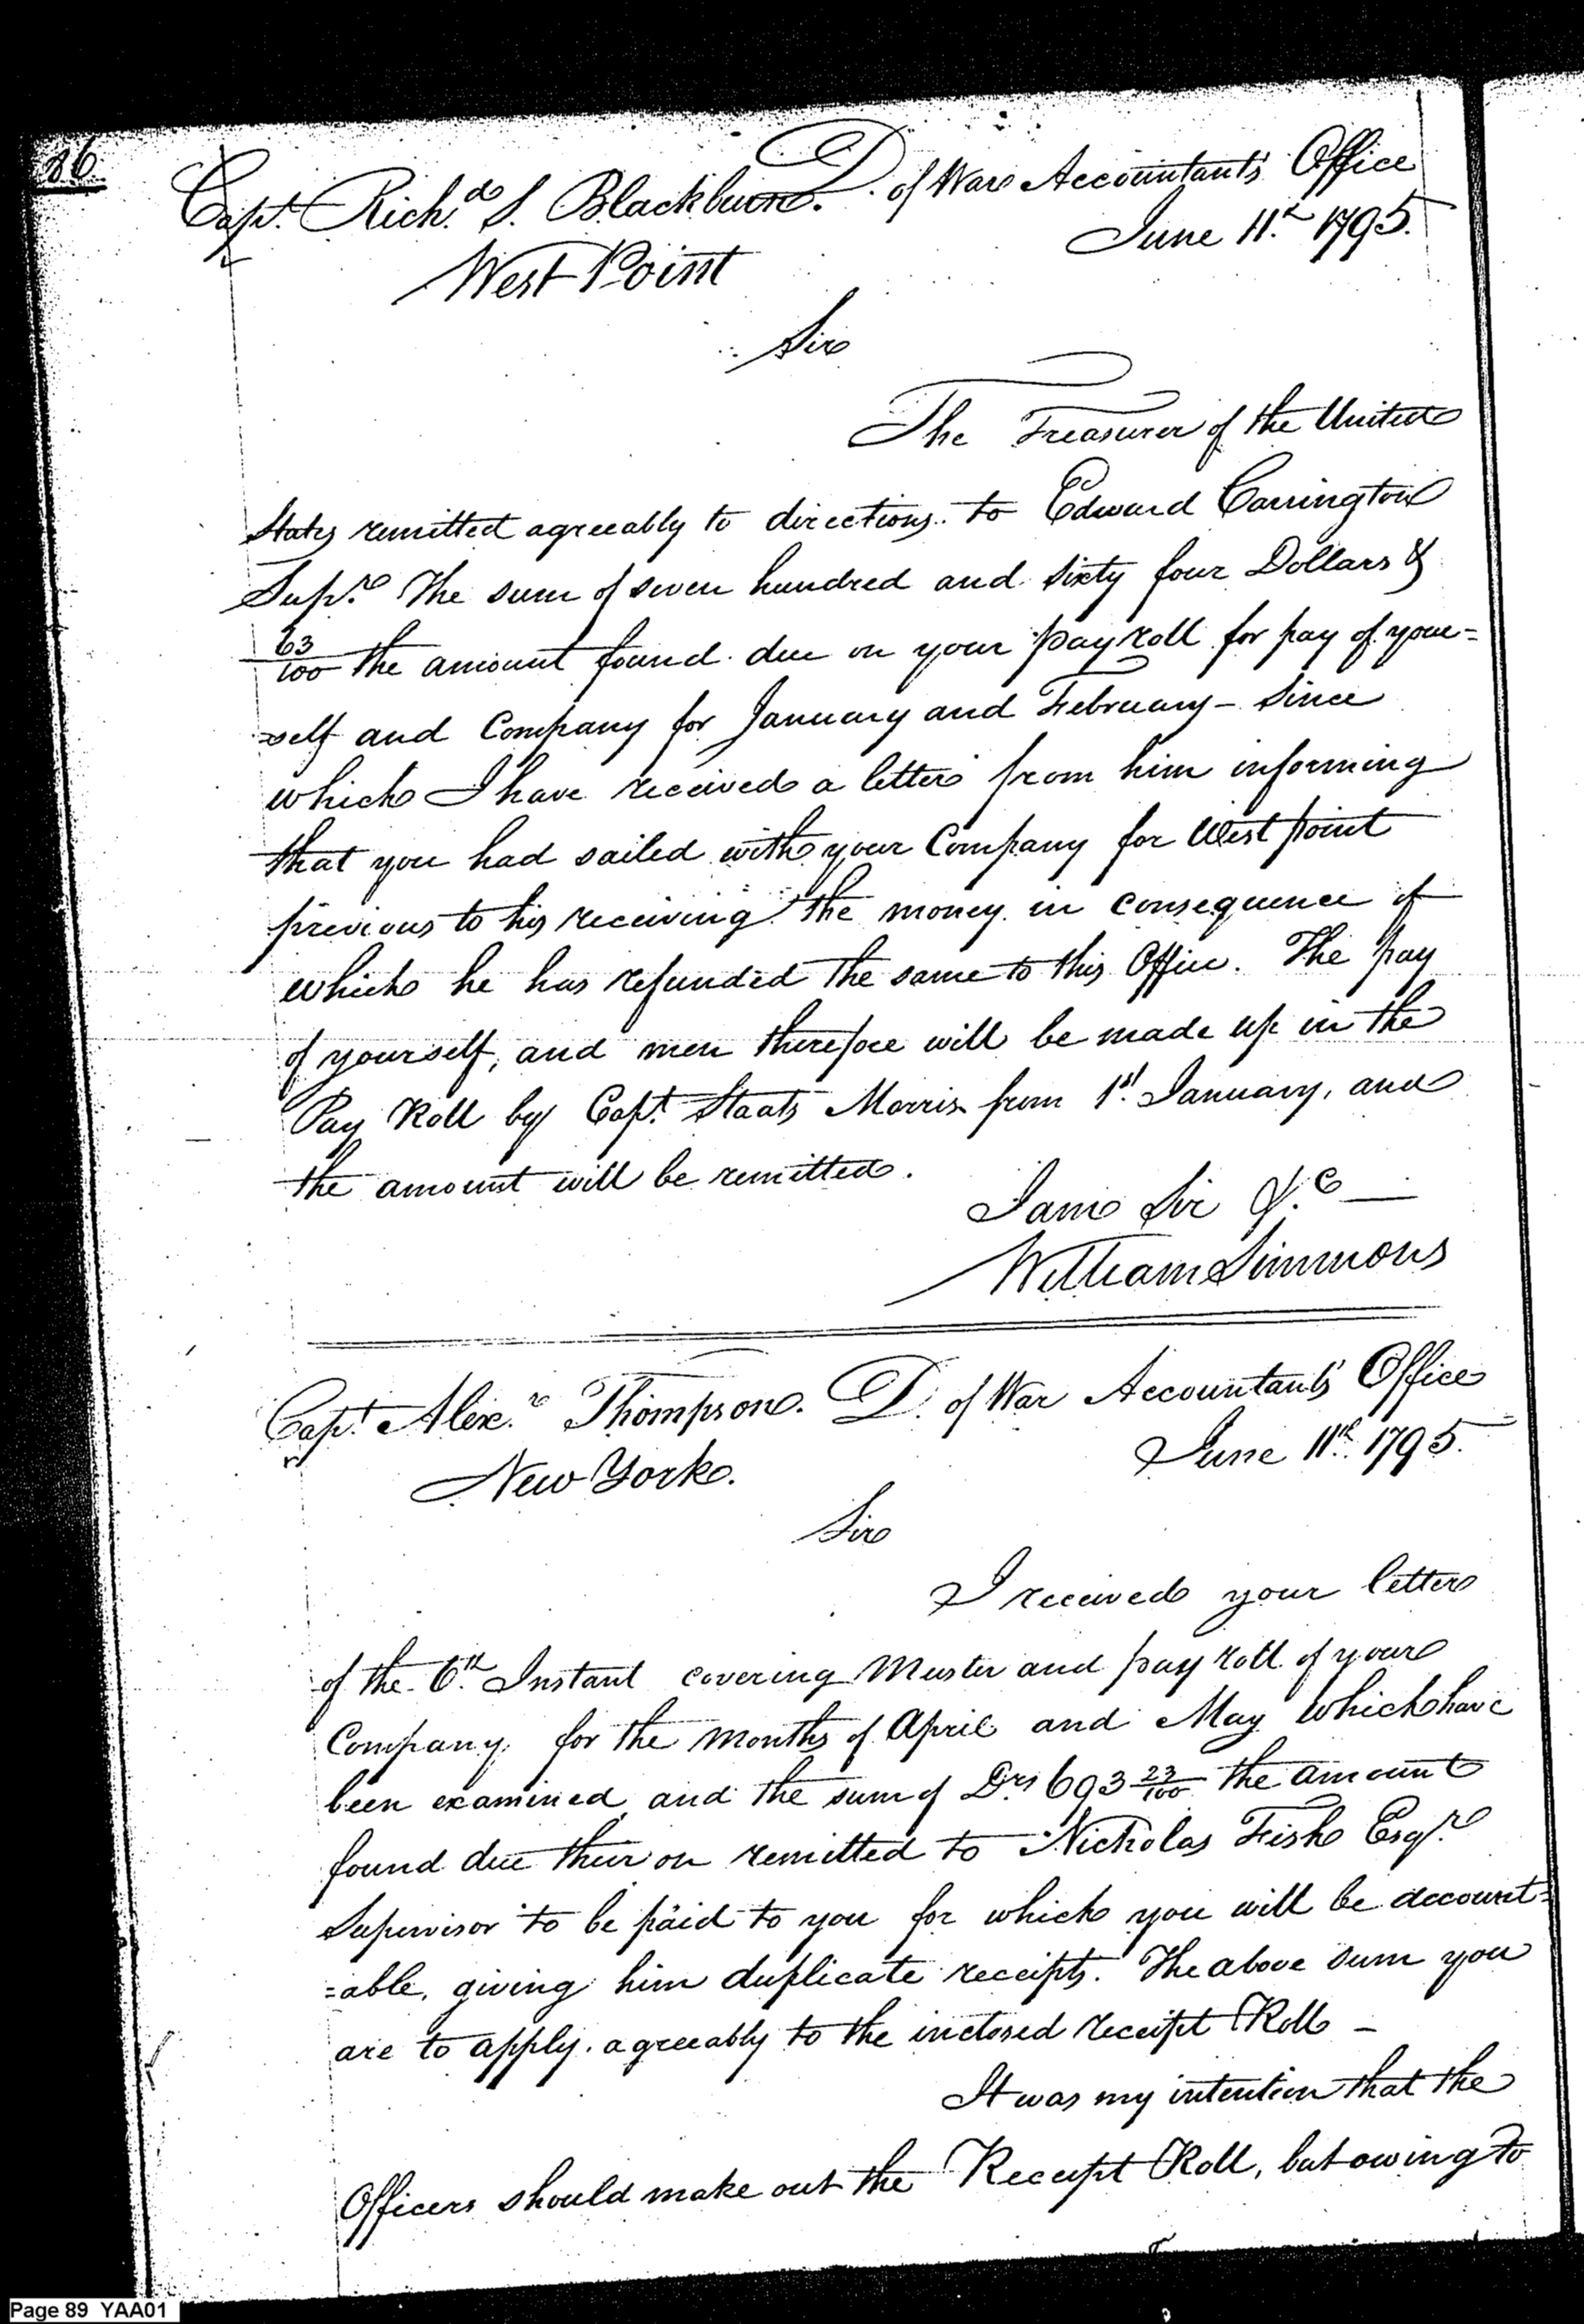 86
Capt. Richd. S. Blackburn. D. of War Accountants Office
June 11th 1795.
West Point
Sir
The Treasurer of the United
States remitted agreeably to directions to Edward Carrington
Supr. The sum of seven hundred and sixty four Dollars &
63/100 the amount found due on your pay roll for pay of your=
=self and Company for January and February - Since
which I have received a letter from him informing
that you had sailed with your Company for West point
previous to his receiving the money in consequence of
which he has refunded the same to this Office. The pay
of yourself, and men therefore will be made up in the
Pay Roll by Capt. Staats Morris from 1st. January, and
the amount will be remitted.
I am Sir &.c —
William Simmons
Capt. Alexr. Thompson. D. of War Accountants Office
June 11th. 1795.
New York.
Sir
I received your letter
of the 6th. Instant covering Muster and pay roll of your
Company, for the months of April and May which have
been examined and the sum of Drs 693 23/100 the amount
found due their on remitted to Nicholas Fish Esqr.
Supervisor to be paid to you for which you will be account=
=able, giving him duplicate receipts. The above sum you
are to apply agreeably to the inclosed receipt Roll -
It was my intention that the
Officers should make out the Receipt Roll, but owing to
Page 89 YAA01